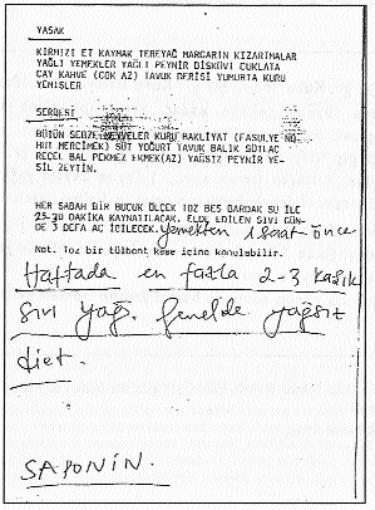 YASAK
KIRMIZI ET KAYMAK TEREYAĞ MARGARIN KIZARTMALAR
YAĞLI YEMEKLER YAĞLI PEYNİR BİSKÜVİ ÇUKLATA
ÇAY KAHVE (ÇOK AZ) TAVUK DERİSİ YUMURTA KURU
YEMİŞLER
SERBEST
BÜTÜN SEBZE MEYVELER KURU BAKLİYAT (FASULYE NO-
HUT MERCİMEK) SÜT YOĞURT TAVUK BALIK SÜTLAÇ
REÇEL BAL PEKMEZ EKMEK(AZ) YAĞSIZ PEYNİR YE-
SİL ZEYTİN.
HER SABAH BİR BUÇUK ÖLÇEK TOZ BEŞ BARDAK SU İLE
25-30 DAKİKA KAYNATILACAK. ELDE EDİLEN SIVI GÜN-
DE 3 DEFA AÇ İÇİLECEK. yemekten 1 saat önce
Not. Toz bir tülbent kese içine konulabilir.
Haftada en fazla 2-3 kaşık
sıvı yağ. Genelde yağsız
diet.
SAPONİN.